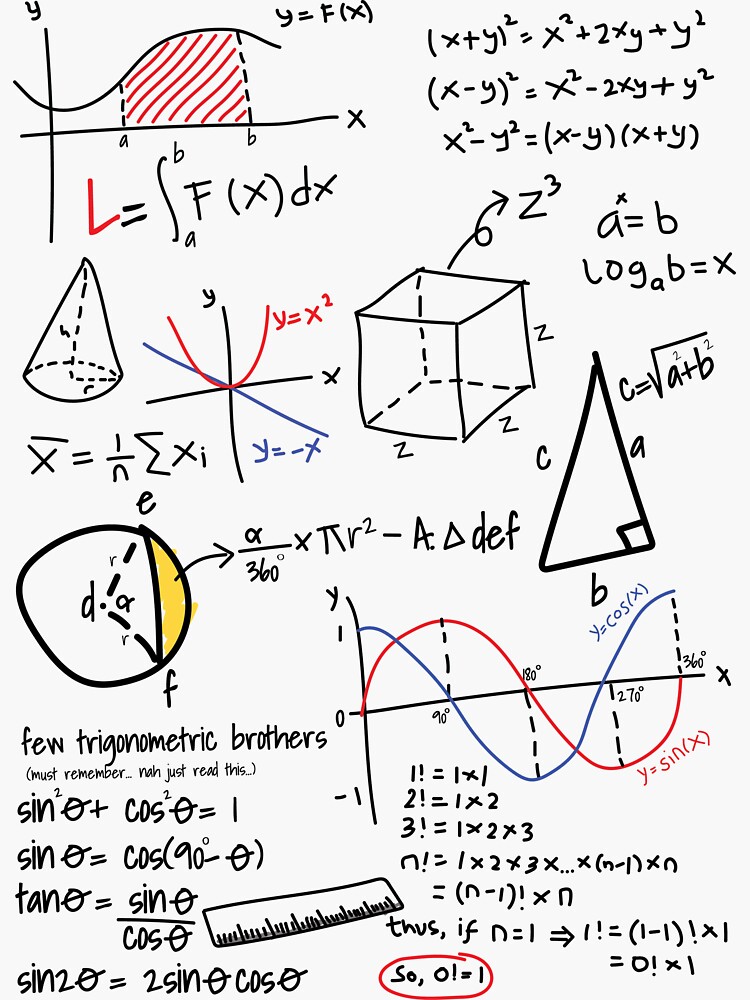 y
y = F(x)
x
a
b
L = ∫ₐᵇ F(x)dx
(x+y)² = x²+2xy+y²
(x-y)² = x²-2xy+y²
x²-y² = (x-y)(x+y)
z³
aˣ = b
logₐb = x
h
r
y
y = x²
x
y = -x
z
z
z
c = √a²+b²
c
a
b
x̅ = 1/n ∑ xᵢ
e
r
d
α
r
f
α/360° × πr² - A. Δ def
y
1
0
-1
90°
180°
270°
360°
x
y=cos(x)
y=sin(x)
few trigonometric brothers
(must remember... nah just read this...)
sin²θ + cos²θ = 1
sin θ = cos(90°-θ)
tanθ = sinθ/cosθ
sin2θ = 2sinθcosθ
1! = 1×1
2! = 1×2
3! = 1×2×3
n! = 1×2×3×...×(n-1)×n
= (n-1)! × n
thus, if n=1 ⇒ 1! = (1-1)! × 1
= 0! × 1
So, 0! = 1